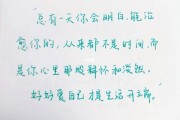 “总有一天你会明白,能治
愈你的,从来都不是时间,而
是你心里那股释怀和淡然。
好好爱自己才是生活开立即。”